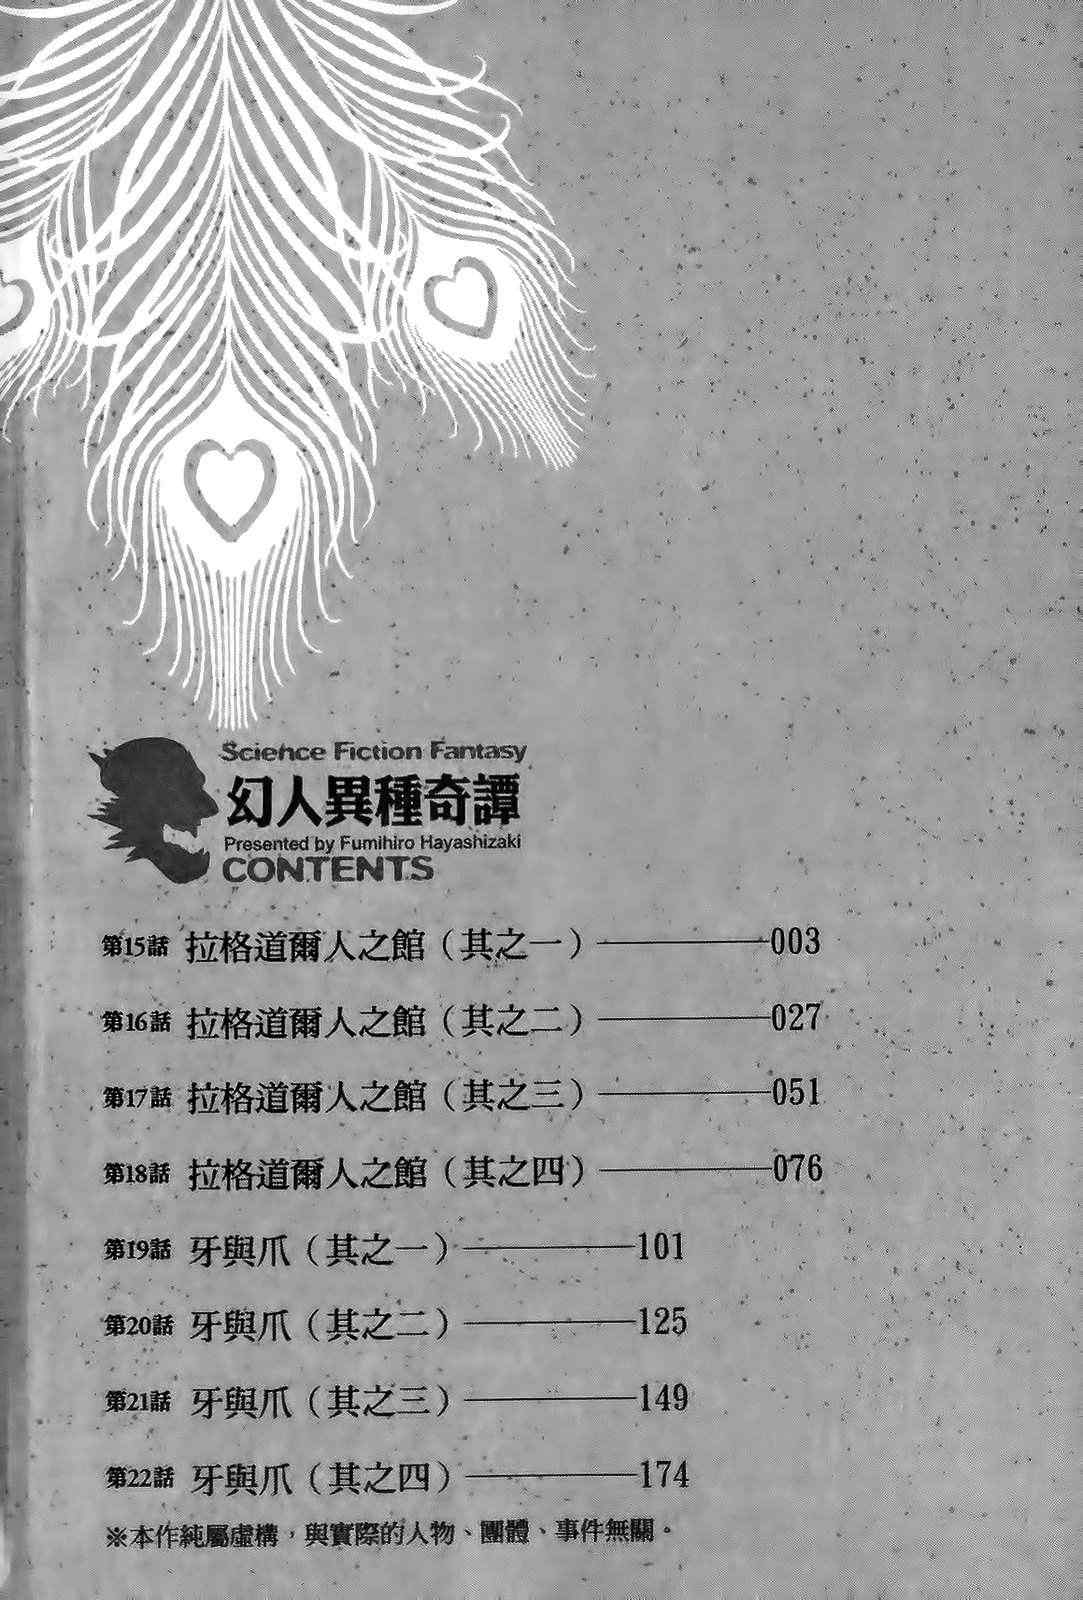 Science Fiction Fantasy
幻人異種奇譚
Presented by Fumihiro Hayashizaki
CONTENTS
第15話 拉格道爾人之館（其之一）――――003
第16話 拉格道爾人之館（其之二）――――027
第17話 拉格道爾人之館（其之三）――――051
第18話 拉格道爾人之館（其之四）――――076
第19話 牙與爪（其之一）――――101
第20話 牙與爪（其之二）――――125
第21話 牙與爪（其之三）――――149
第22話 牙與爪（其之四）――――174
※本作純屬虛構，與實際的人物、團體、事件無關。